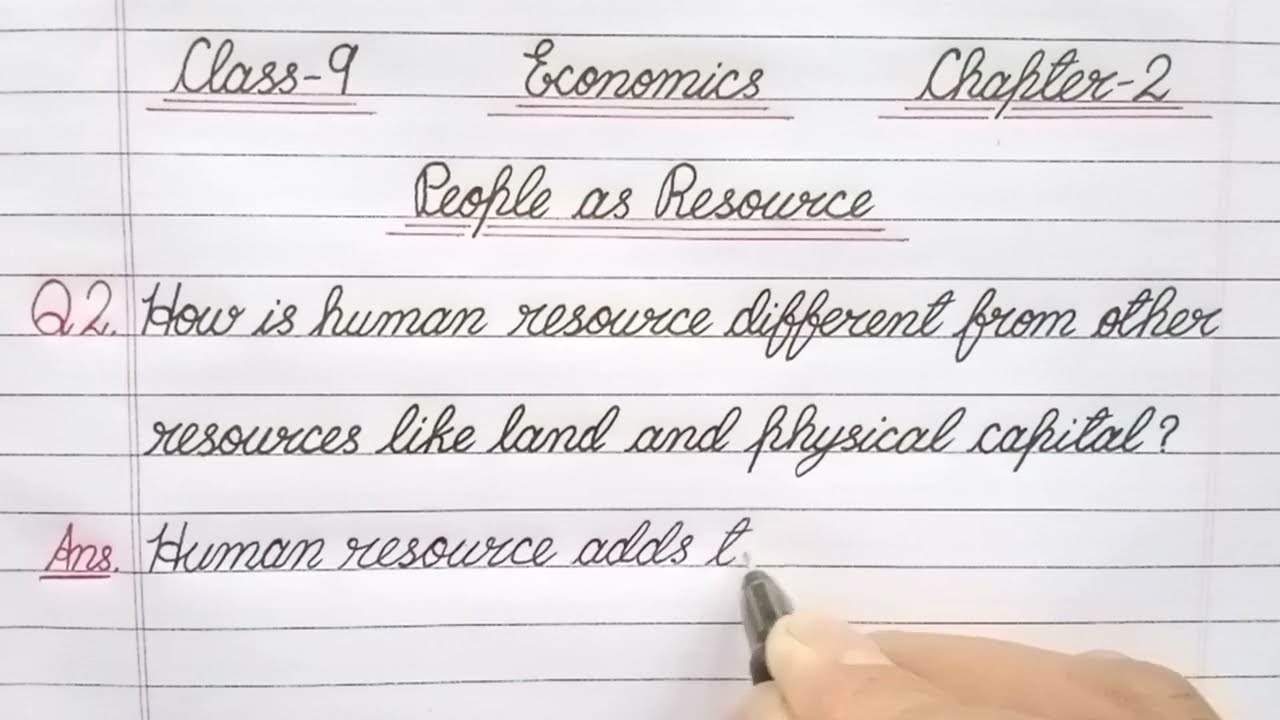 Class-9 Economics Chapter-2
People as Resource
Q2. How is human resource different from other
resources like land and physical capital?
Ans. Human resource adds t